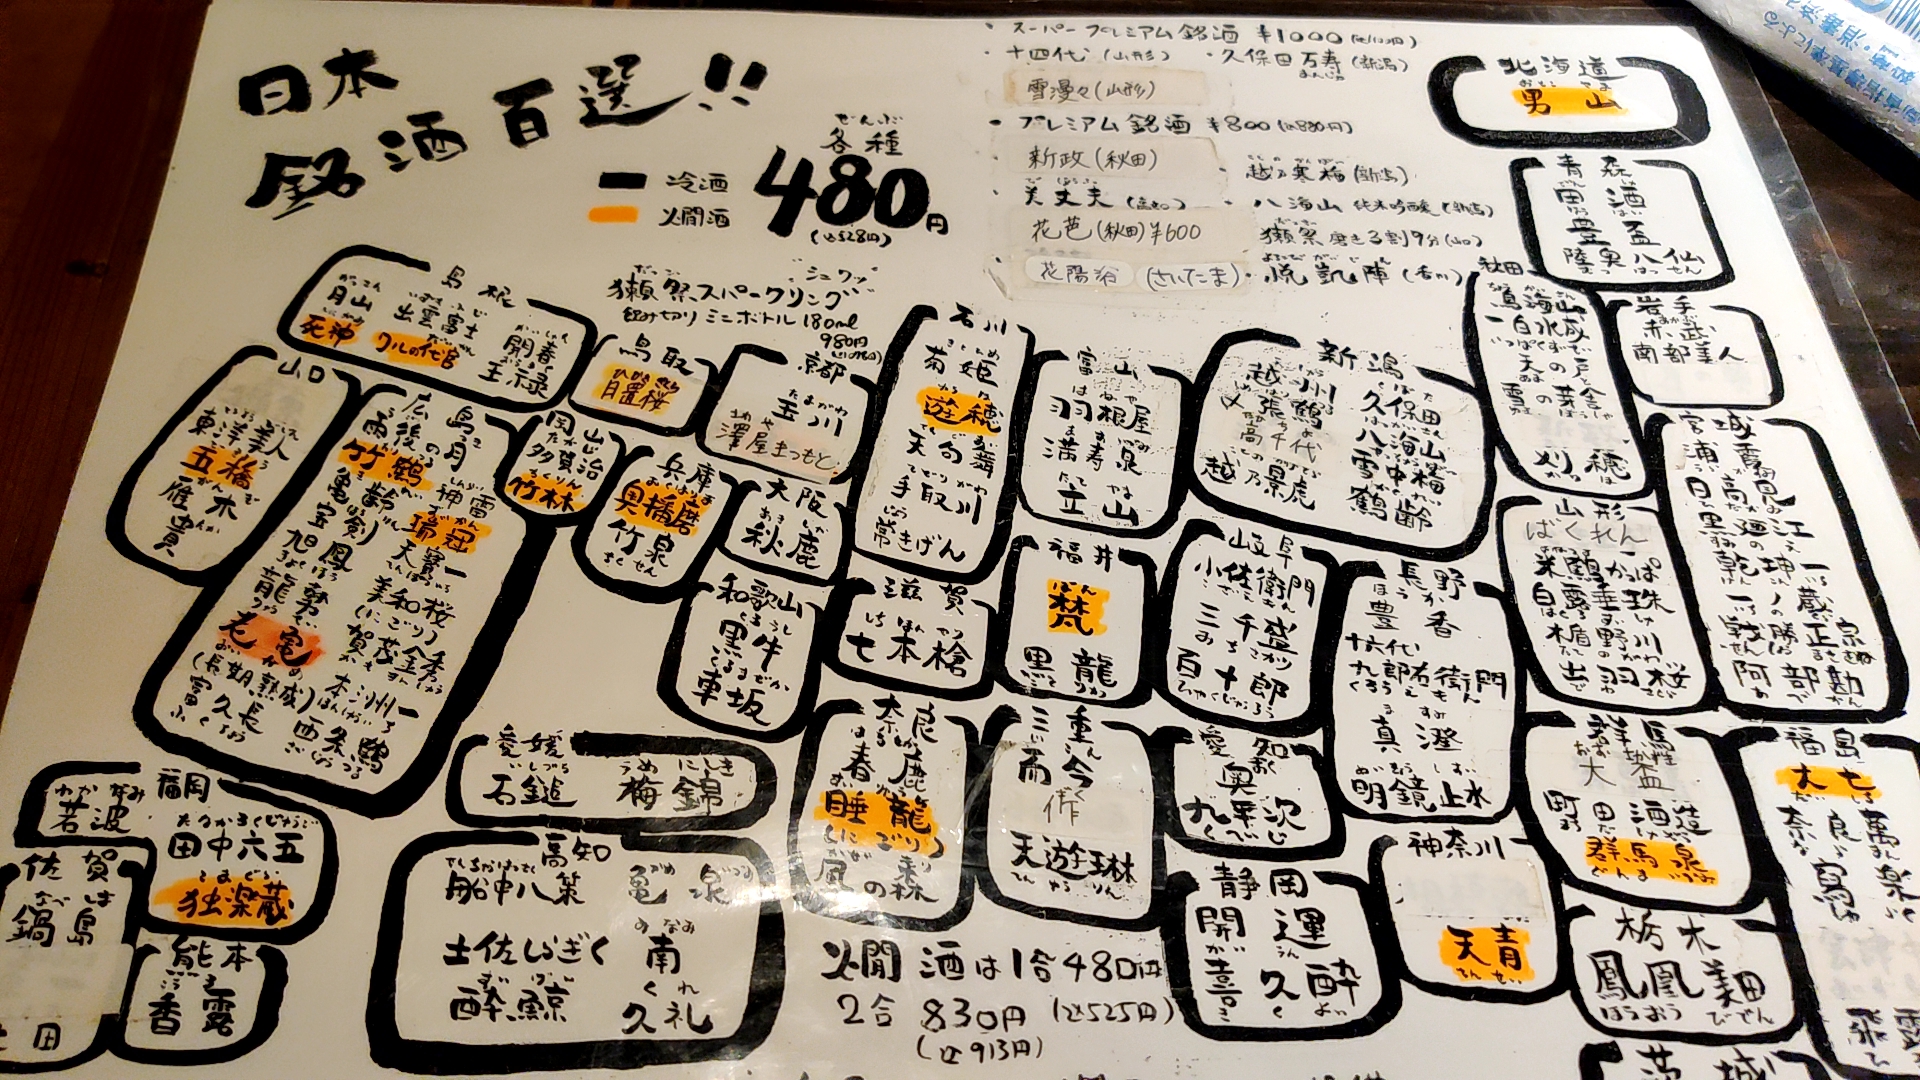 日本
銘酒百選!!
ぜんぶ
各種
480円
(込528円)
冷酒
火燗酒
・スーパープレミアム銘酒 ¥1000
・十四代(山形) ・久保田万寿(新潟)
雪漫々(山形)
・プレミアム銘酒 ¥800(込880円)
新政(秋田)
・越乃寒梅(新潟)
・美丈夫(高知)
・八海山 純米吟醸(新潟)
花邑(秋田)¥600
獺祭 磨き三割9分(山口)
花陽浴 (さいたま)
・悦凱陣(香川)
"シュワッ"
獺祭スパークリング
飲み切りミニボトル180ml
980円
北海道
男山
青森
田酒
豊盃
陸奥八仙
秋田
鳥海山
一白水成
天の戸
雪の茅舎
刈穂
岩手
赤武
南部美人
宮城
浦霞
日高見
黒澤
乾坤一
一ノ蔵
戦勝政宗
阿部勘
山形
ばくれん
米鶴
白露垂珠
楯野川
出羽桜
新潟
越州
〆張鶴
高千代
越乃景虎
久保田
八海山
雪中梅
鶴齢
富山
羽根屋
満寿泉
立山
石川
菊姫
遊穂
天狗舞
手取川
常きげん
福井
梵
黒龍
岐阜
小左衛門
三千盛
百十郎
長野
豊香
十六代
九郎右衛門
真澄
明鏡止水
群馬
大盃
町田酒造
群馬泉
福島
大七
奈良萬
寫楽
飛露
栃木
鳳凰美田
茨城
神奈川
天青
静岡
開運
喜久酔
愛知
奥
九平次
三重
而今
作
天遊琳
滋賀
七本槍
京都
玉川
澤屋まつもと
大阪
秋鹿
奈良
春鹿
睡龍
(にごり)
風の森
和歌山
黒牛
車坂
兵庫
奥播磨
竹泉
岡山
多賀治
竹林
鳥取
日置桜
島根
月山
死神
出雲富士
クルの代官
開春
王禄
広島
雨後の月
竹鶴
神雷
亀齢
瑞冠
宝剣
天寶一
旭鳳
美和桜
(にごり)
龍勢
賀茂金秀
老亀
(長期熟成)
本洲一
富久長
西条鶴
山口
東洋美人
五橋
雁木
貴
愛媛
石鎚 梅錦
高知
船中八策 亀泉
土佐しらぎく 南
酔鯨 久礼
福岡
若波
田中六五
独楽蔵
佐賀
鍋島
熊本
香露
火燗酒は1合480円
2合 830円 (込525円)
(込913円)